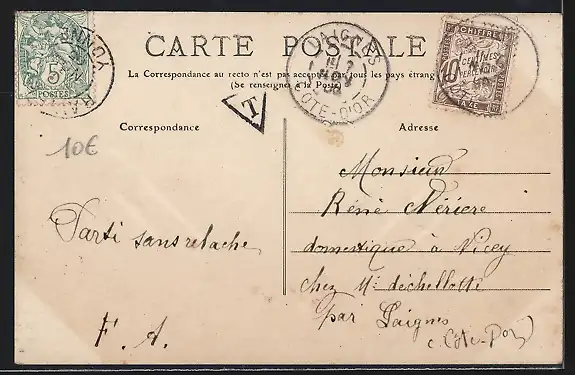 CARTE POSTALE
La Correspondance au recto n'est pas acceptée par tous les pays étrang
(Se renseigner à la Poste)
YONNE
5
POSTES
LAIGNES
COTE-D'OR
CHIFFRE
10
CENTIMES
A PERCEVOIR
TAXE
T
Correspondance
10€
Parti sans relache
F. A.
Adresse
Monsieur
Réné Nériere
domestique à Nicey
chez Mr déchellotte
par Laignes
(Côte-Dor)